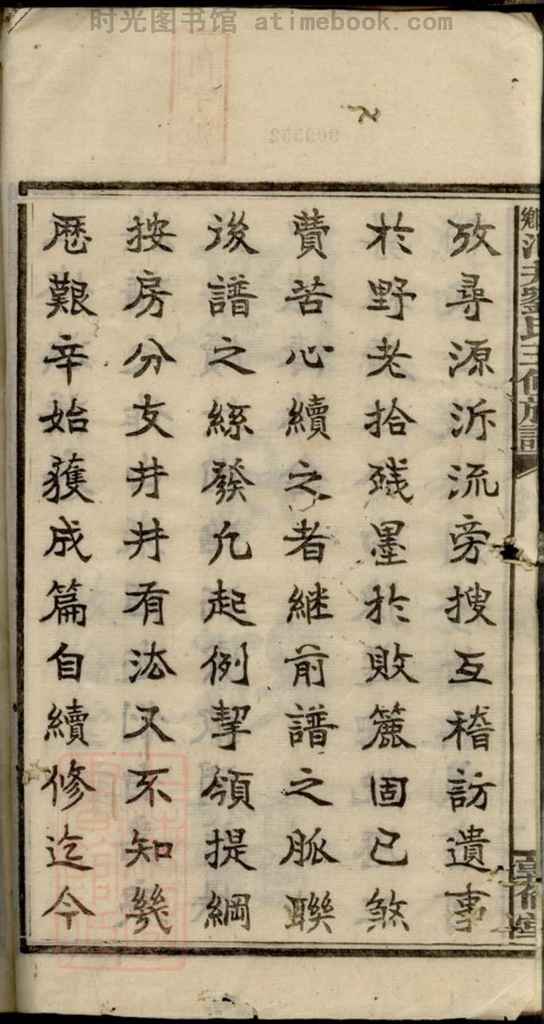 时光图书馆 atimebook.com
攷尋源泝流旁搜互稽訪遺事
於野老拾殘墨於敗簏固已煞
費苦心續之者継前譜之脈聯
後譜之絲發凢起例挈領提綱
按房分支井井有法又不知幾
歷艱辛始獲成篇自續修迄今